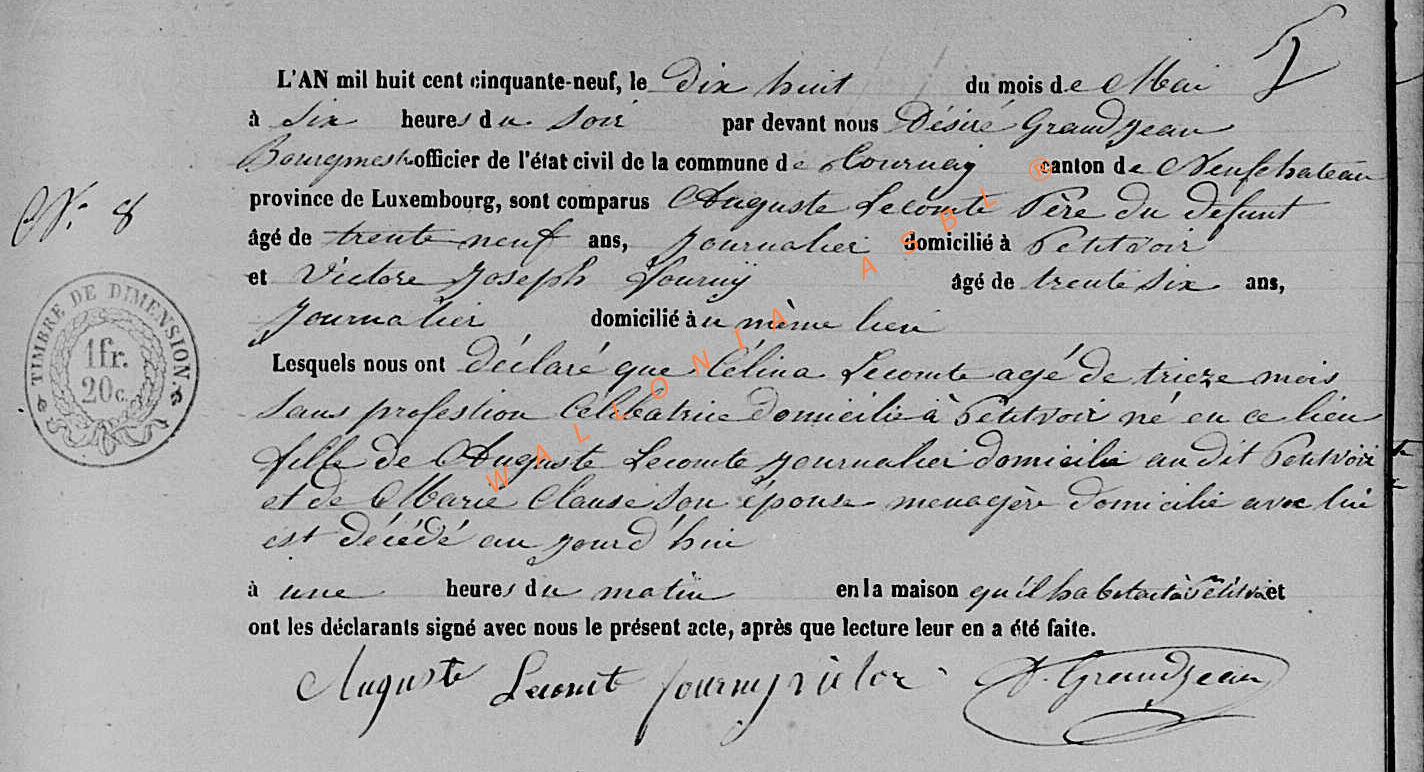 L'AN mil huit cent cinquante-neuf, le dix huit du mois de Mai
à Six heures du Soir par devant nous Désiré Grandjean
Bourgmestre officier de l'état civil de la commune de Tournay canton de Neufchateau
province de Luxembourg, sont comparus Auguste Lecomte Père du defunt
N° 8
âgé de trente neuf ans, Journalier domicilié à Petitvoir
et Victore Joseph Fourny âgé de trente Six ans,
Journalier domicilié au même lieu
Lesquels nous ont déclaré que Célina Lecomte agé de trieze mois
Sans profession Celibatrice domicilié à Petitvoir né en ce lieu
fille de Auguste Lecomte journalier domicilié au dit Petitvoir
et de Marie Clause Son épouse menagère domicilié avec lui
est décédé au jourd'hui
à une heures du matin en la maison qu'il habitait à Petitvoir et
ont les déclarants signé avec nous le présent acte, après que lecture leur en a été faite.
Auguste Lecomte fourny victor D. Grandjean
TIMBRE DE DIMENSION.
1fr.
20c.
WALLONIA ASBL ®